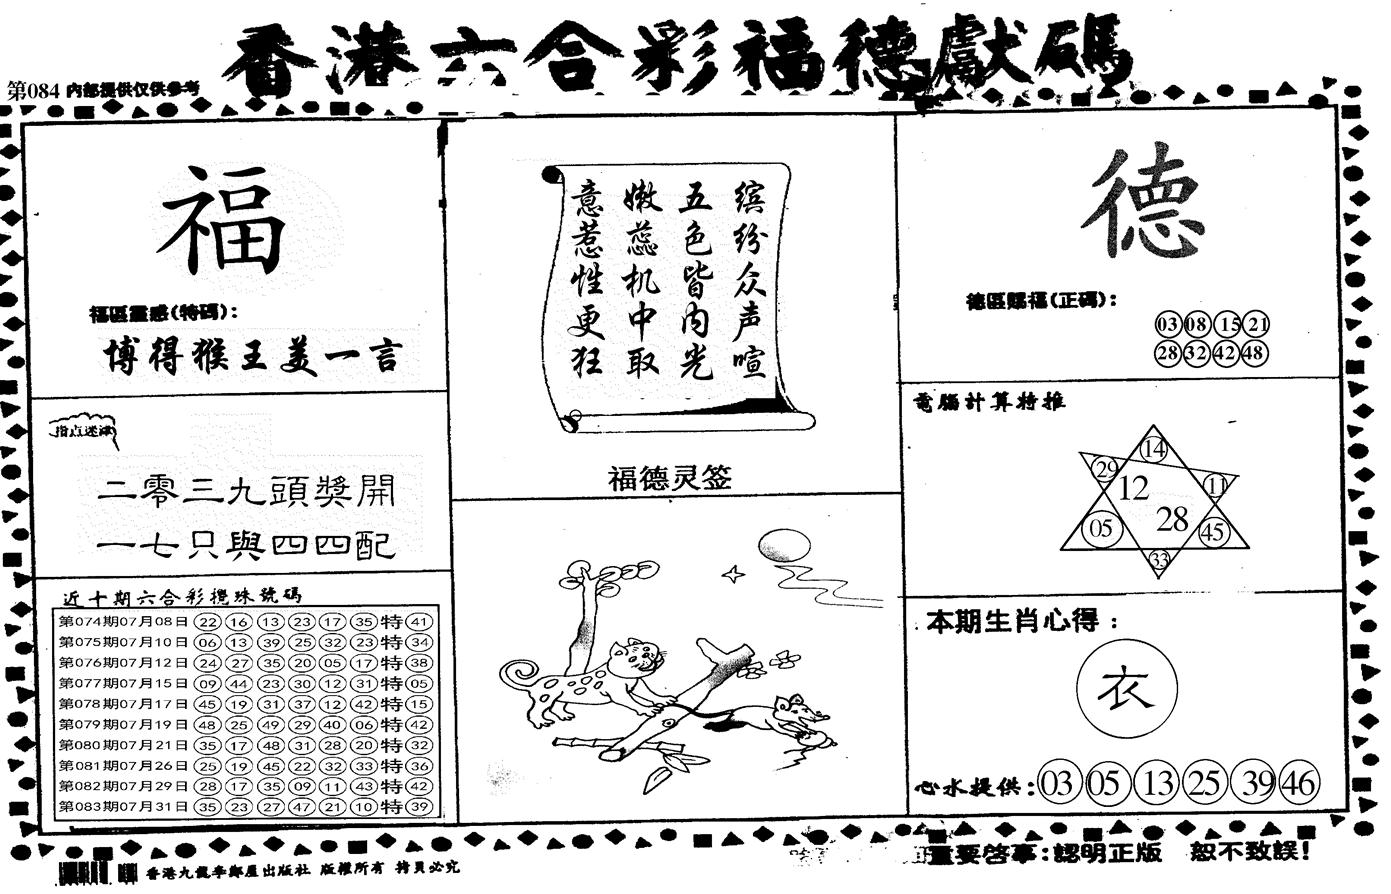 香港六合彩福德獻碼
第084 内部提供仅供参考
福
福區靈感(特碼):
博得猴王美一言
指点迷津
二零三九頭獎開
一七只與四四配
近十期六合彩攪珠號碼
第074期07月08日 22 16 13 23 17 35 特 41
第075期07月10日 06 13 39 25 32 23 特 34
第076期07月12日 24 27 35 20 05 17 特 38
第077期07月15日 09 44 23 30 12 31 特 05
第078期07月17日 45 19 31 37 12 42 特 15
第079期07月19日 48 25 49 29 40 06 特 42
第080期07月21日 35 17 48 31 28 20 特 32
第081期07月26日 25 19 45 22 32 33 特 36
第082期07月29日 28 17 35 09 11 43 特 42
第083期07月31日 35 23 27 47 21 10 特 39
缤纷众声喧
五色皆内光
嫩蕊机中取
意惹性更狂
福德灵签
德
德區賜福(正碼):
03 08 15 21
28 32 42 48
電腦計算特推
14
29
12
11
05
28
45
33
本期生肖心得:
衣
心水提供: 03 05 13 25 39 46
香港九龍 出版社 版權所有 拷貝必究
重要啓事:認明正版 恕不致誤!